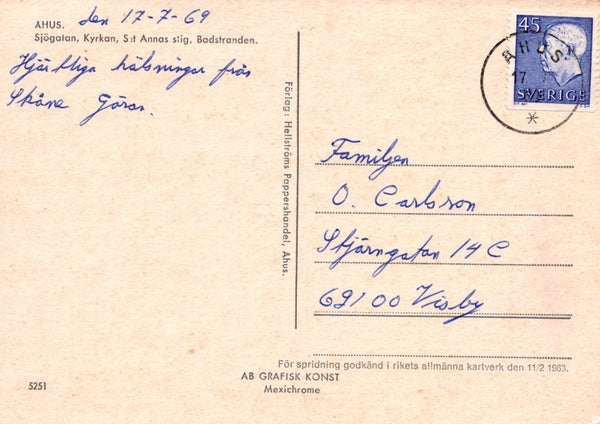 ÅHUS. den 17-7-69
Sjögatan, Kyrkan, S:t Annas stig, Badstranden.
Hjärtliga hälsningar från
Skåne Göran.
Förlag: Hellströms Pappershandel, Åhus.
45
SVERIGE
ÅHUS
17
Familjen
O. Carlsson
Stjärngatan 14 C
62100 Visby
För spridning godkänd i rikets allmänna kartverk den 11/2 1963.
AB GRAFISK KONST
Mexichrome
5251